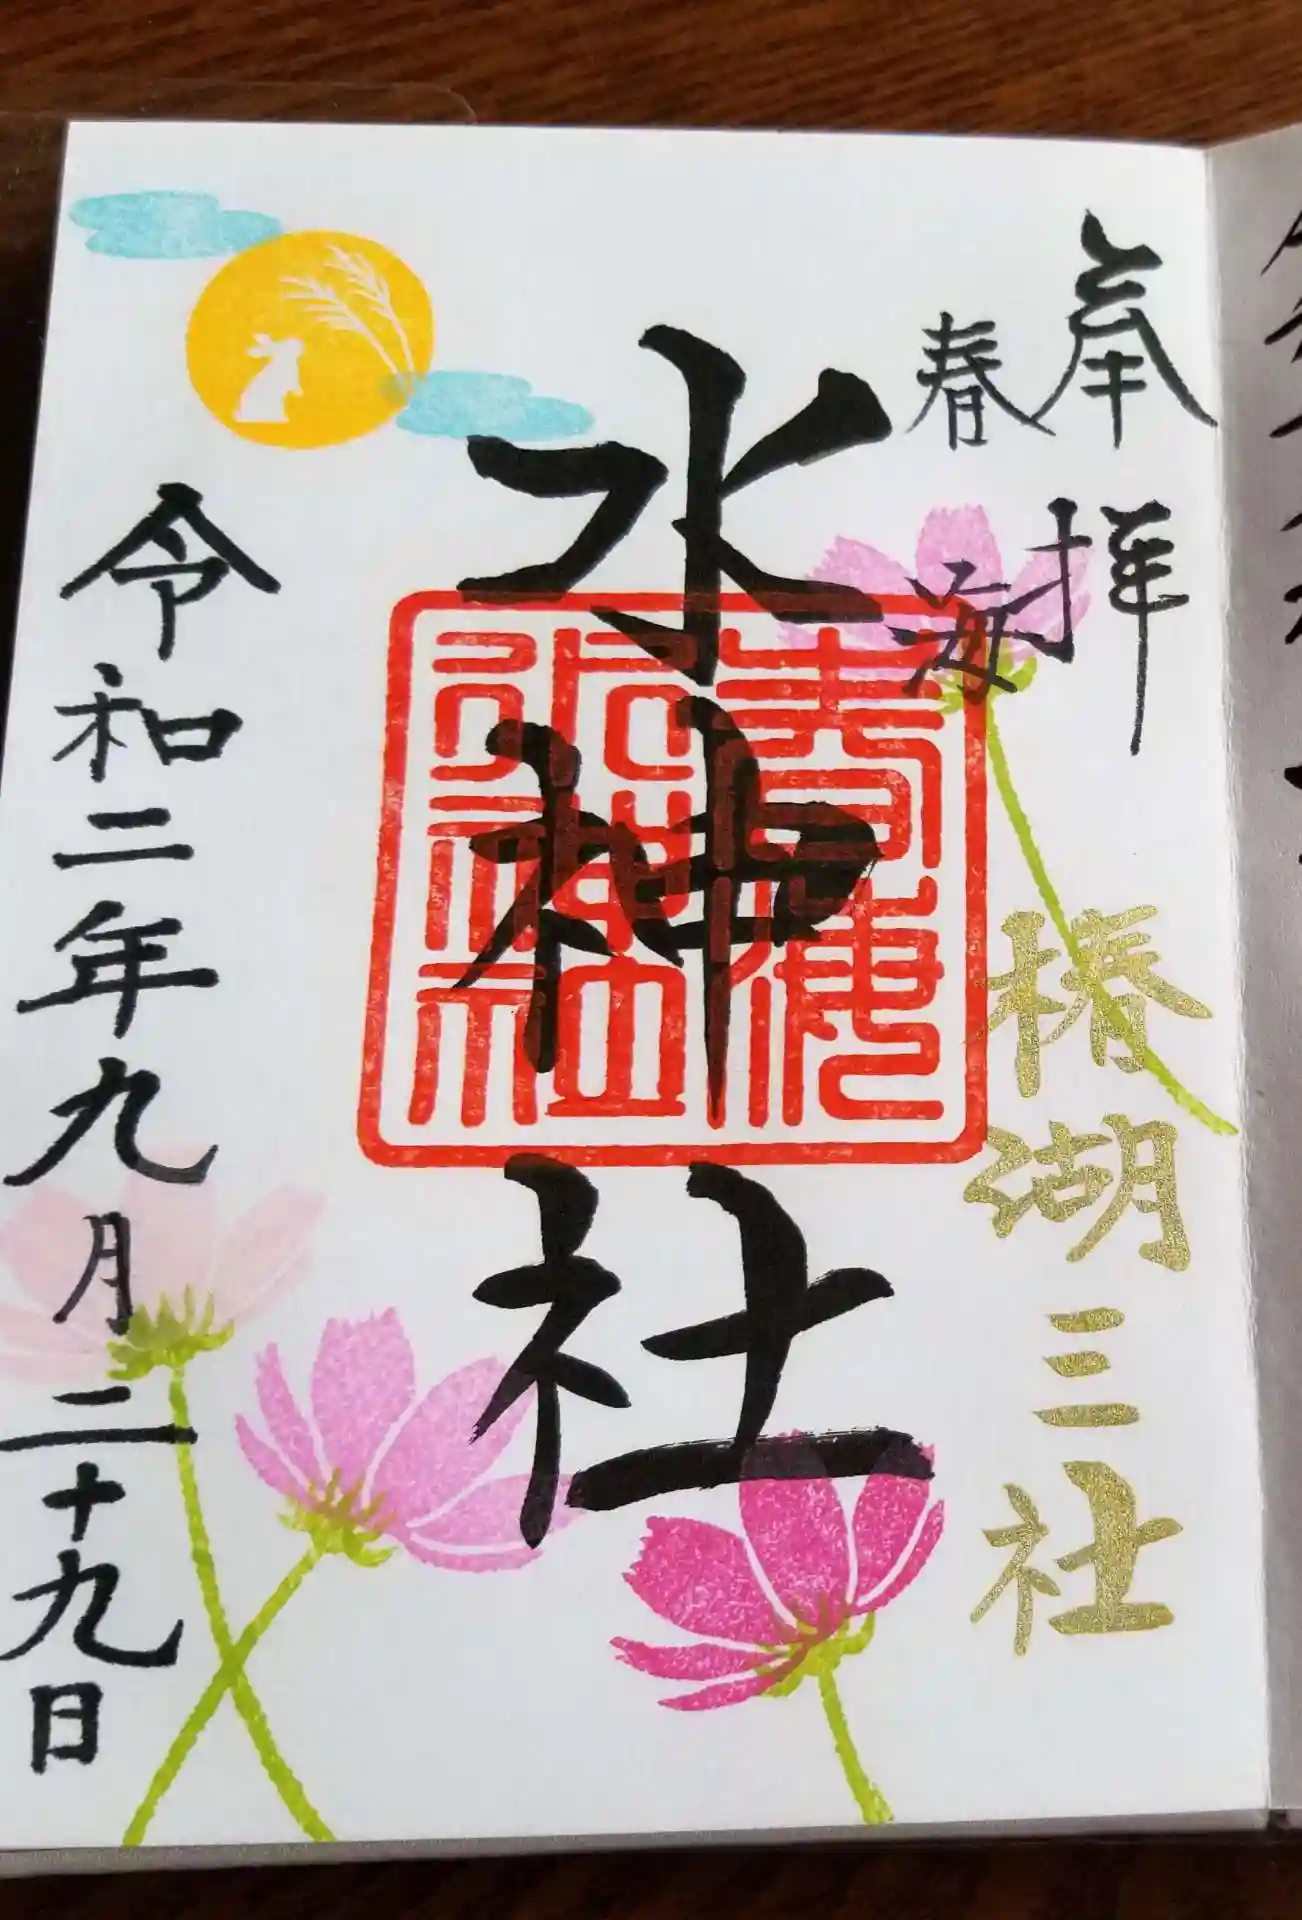 奉拝
春海
椿湖三社
水神社
令和二年九月二十九日